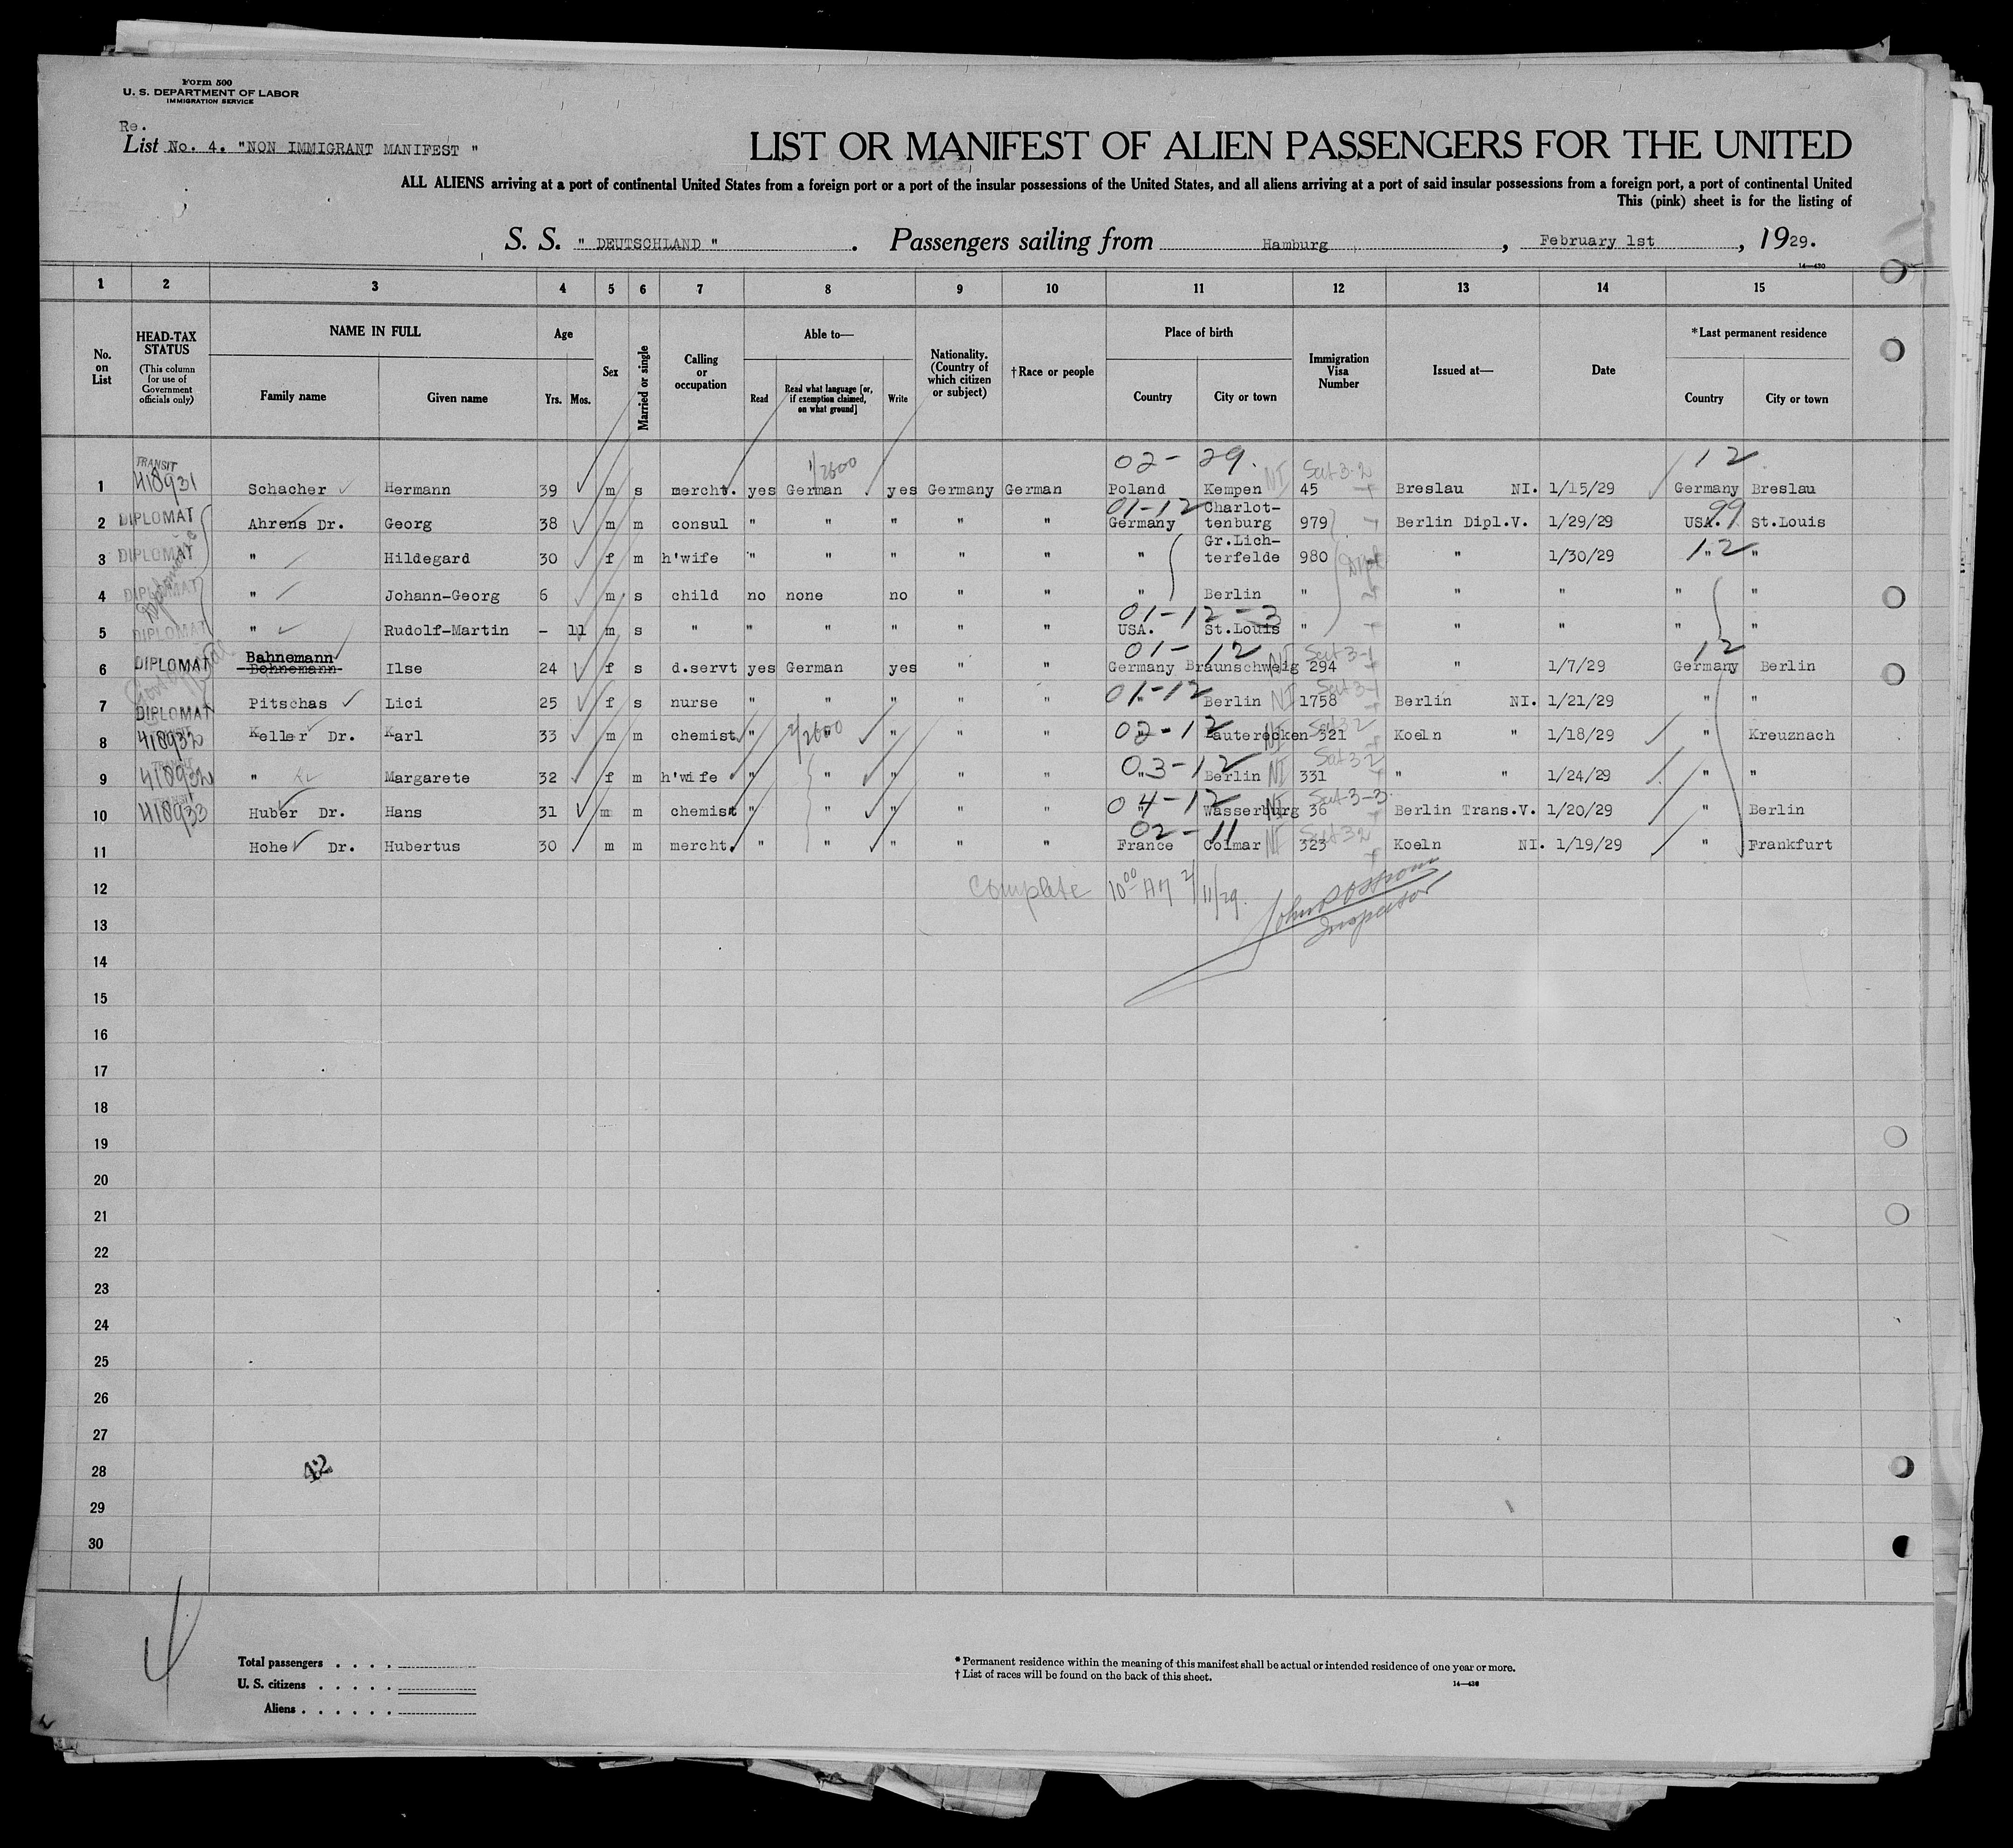 Form 500
U. S. DEPARTMENT OF LABOR
IMMIGRATION SERVICE
Re.
List No. 4. "NON IMMIGRANT MANIFEST "
LIST OR MANIFEST OF ALIEN PASSENGERS FOR THE UNITED
ALL ALIENS arriving at a port of continental United States from a foreign port or a port of the insular possessions of the United States, and all aliens arriving at a port of said insular possessions from a foreign port, a port of continental United
This (pink) sheet is for the listing of
S. S. " DEUTSCHLAND " . Passengers sailing from Hamburg , February 1st , 1929.
14—430
1 2 3 4 5 6 7 8 9 10 11 12 13 14 15
No. on List
HEAD-TAX STATUS (This column for use of Government officials only)
NAME IN FULL Family name Given name
Age Yrs. Mos.
Sex
Married or single
Calling or occupation
Able to— Read Read what language [or, if exemption claimed, on what ground] Write
Nationality. (Country of which citizen or subject)
†Race or people
Place of birth Country City or town
Immigration Visa Number
Issued at—
Date
*Last permanent residence Country City or town
02- 29. 12
1/2600 NI Sect 3-2
1 TRANSIT 418931 Schacher Hermann 39 m s mercht. yes German yes Germany German Poland Kempen 45 Breslau NI. 1/15/29 Germany Breslau
01-12 99
2 DIPLOMAT Ahrens Dr. Georg 38 m m consul " " " " " Germany Charlot-tenburg 979 Berlin Dipl.V. 1/29/29 USA. St.Louis
12
3 DIPLOMAT " Hildegard 30 f m h'wife " " " " " " Gr.Lich-terfelde 980 Dipl " 1/30/29 " "
4 DIPLOMAT " Johann-Georg 6 m s child no none no " " " Berlin " " " " "
01-12-3
5 DIPLOMAT " Rudolf-Martin - 11 m s " " " " " " USA. St.Louis " " " " "
01- 12 NI Sect 3-1 12
6 DIPLOMAT Bahnemann Bohnemann Ilse 24 f s d.servt yes German yes " " Germany Braunschweig 294 " 1/7/29 Germany Berlin
01-12 NI Sect 3-1
7 DIPLOMAT Pitschas Lici 25 f s nurse " " " " " " Berlin 1758 Berlin NI. 1/21/29 " "
2/2600 02-12 NI Sect 3 2
8 418932 Keller Dr. Karl 33 m m chemist. " " " " " " Lauterecken 321 Koeln " 1/18/29 " Kreuznach
03-12 NI Sect 3-2
9 TRANSIT 418932 " Margarete 32 f m h'wife " " " " " " Berlin 331 " " 1/24/29 " "
04-12 NI Sect 3-3
10 TRANSIT 418933 Huber Dr. Hans 31 m m chemist " " " " " " Wasserburg 36 Berlin Trans.V. 1/20/29 " Berlin
02-11 NI Sect 3 2
11 Hohe Dr. Hubertus 30 m m mercht. " " " " " France Colmar 323 Koeln NI. 1/19/29 " Frankfurt
12 Complete 10 00 AM 2/11/29.
Inspector
13
14
15
16
17
18
19
20
21
22
23
24
25
26
27
28
42
29
30
4
Total passengers . . . .
U. S. citizens . . . . .
Aliens . . . . . .
* Permanent residence within the meaning of this manifest shall be actual or intended residence of one year or more.
† List of races will be found on the back of this sheet.
14—430